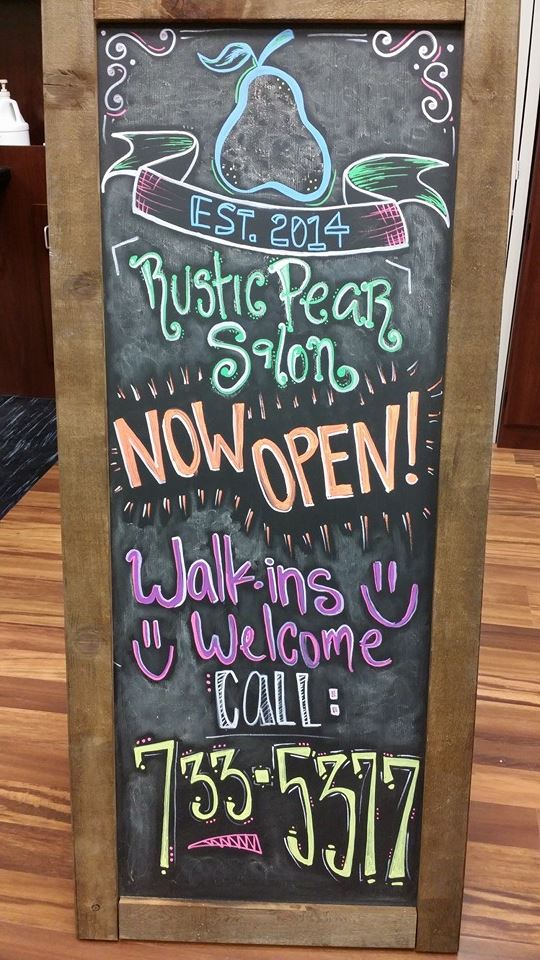 EST. 2014
Rustic Pear
Salon
NOW OPEN!
Walk-ins
Welcome
CALL:
733-5377